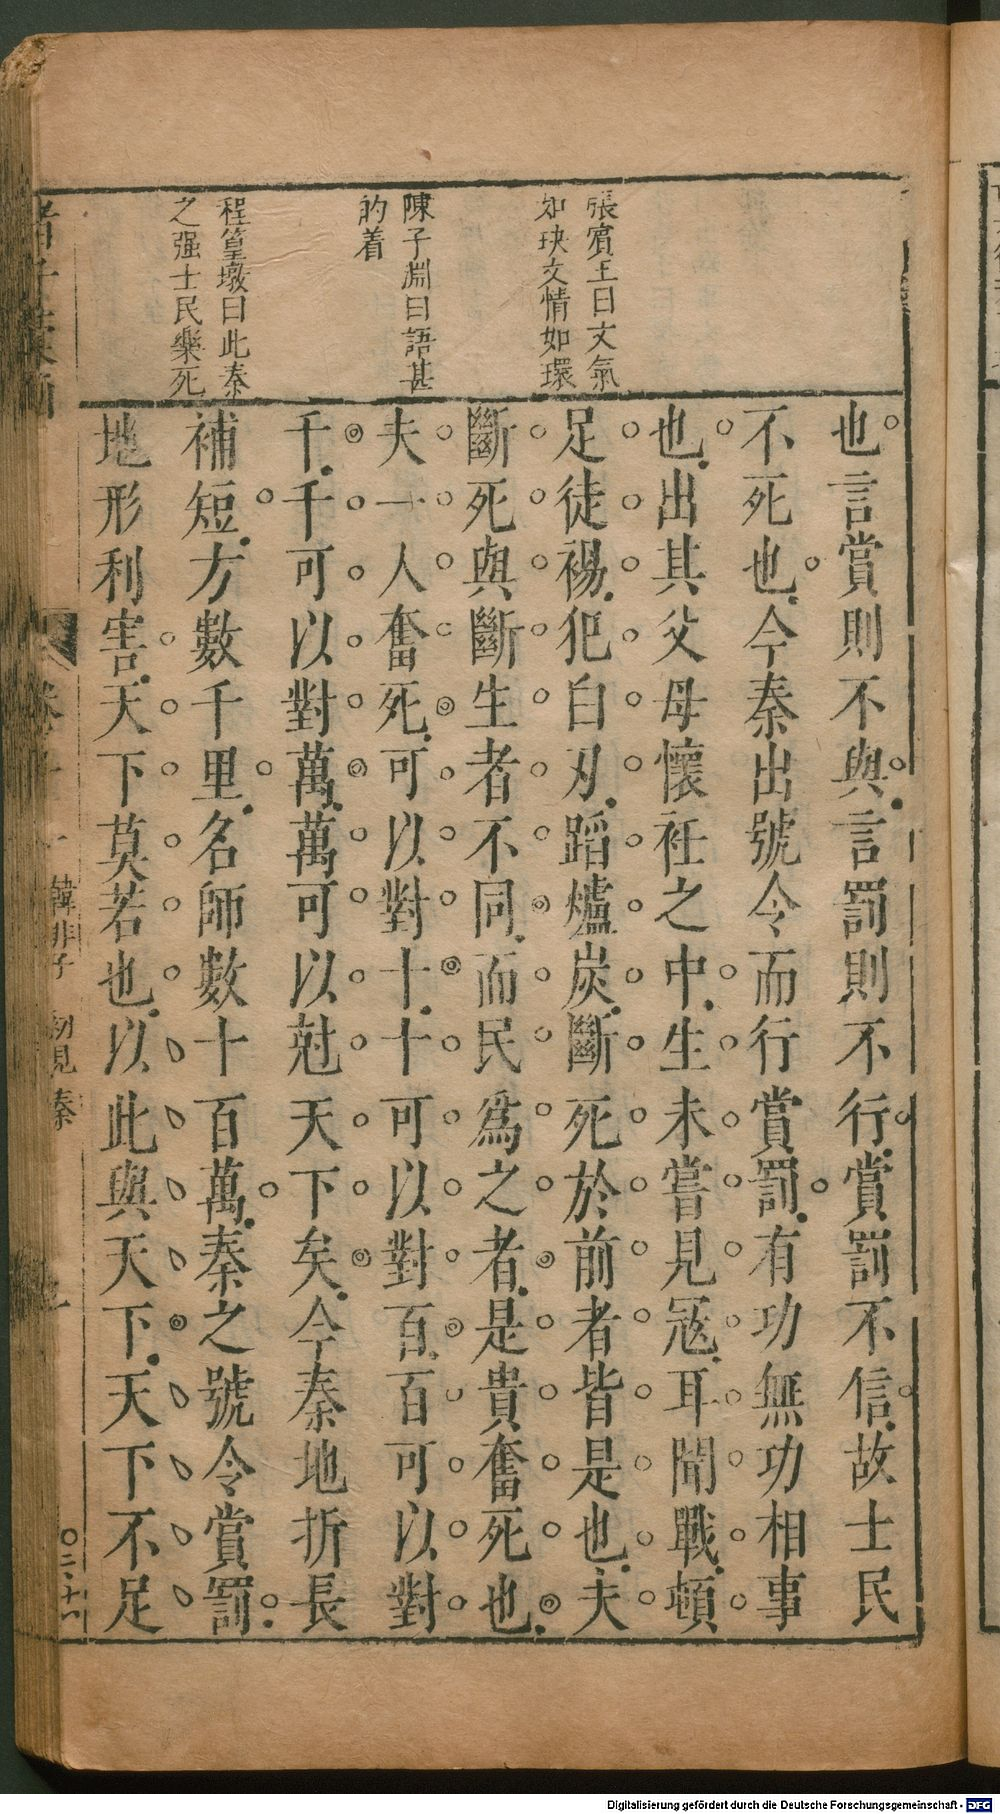 張賓王曰文氣
如玦文情如環
陳子淵曰語甚
的着
程篁墩曰此秦
之强士民樂死
也言賞則不與言罰則不行賞罰不信故士民
不死也今秦出號令而行賞罰有功無功相事
也出其父母懷衽之中生未嘗見寇耳聞戰頓
足徒裼犯白刃蹈爐炭斷死於前者皆是也夫
斷死與斷生者不同而民爲之者是貴奮死也
夫一人奮死可以對十十可以對百百可以對
千千可以對萬萬可以尅天下矣今秦地折長
補短方數千里名師數十百萬秦之號令賞罰
地形利害天下莫若也以此與天下天下不足
韓非子 初見秦
Digitalisierung gefördert durch die Deutsche Forschungsgemeinschaft - DFG